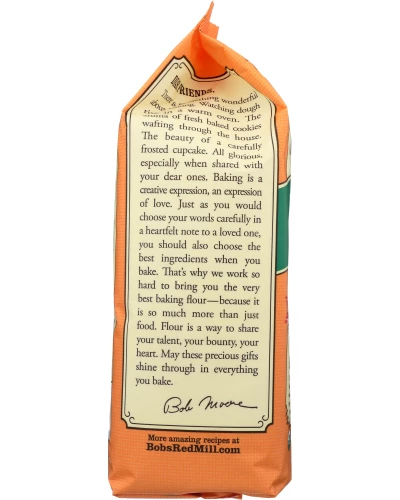 FRIENDS,
wonderful
Watching dough
in a warm oven. The
of fresh baked cookies
wafting through the house.
The beauty of a carefully
frosted cupcake. All glorious,
especially when shared with
your dear ones. Baking is a
creative expression, an expression
of love. Just as you would
choose your words carefully in
a heartfelt note to a loved one,
you should also choose the
best ingredients when you
bake. That's why we work so
hard to bring you the very
best baking flour—because it
is so much more than just
food. Flour is a way to share
your talent, your bounty, your
heart. May these precious gifts
shine through in everything
you bake.
Bob Moore
More amazing recipes at
BobsRedMill.com